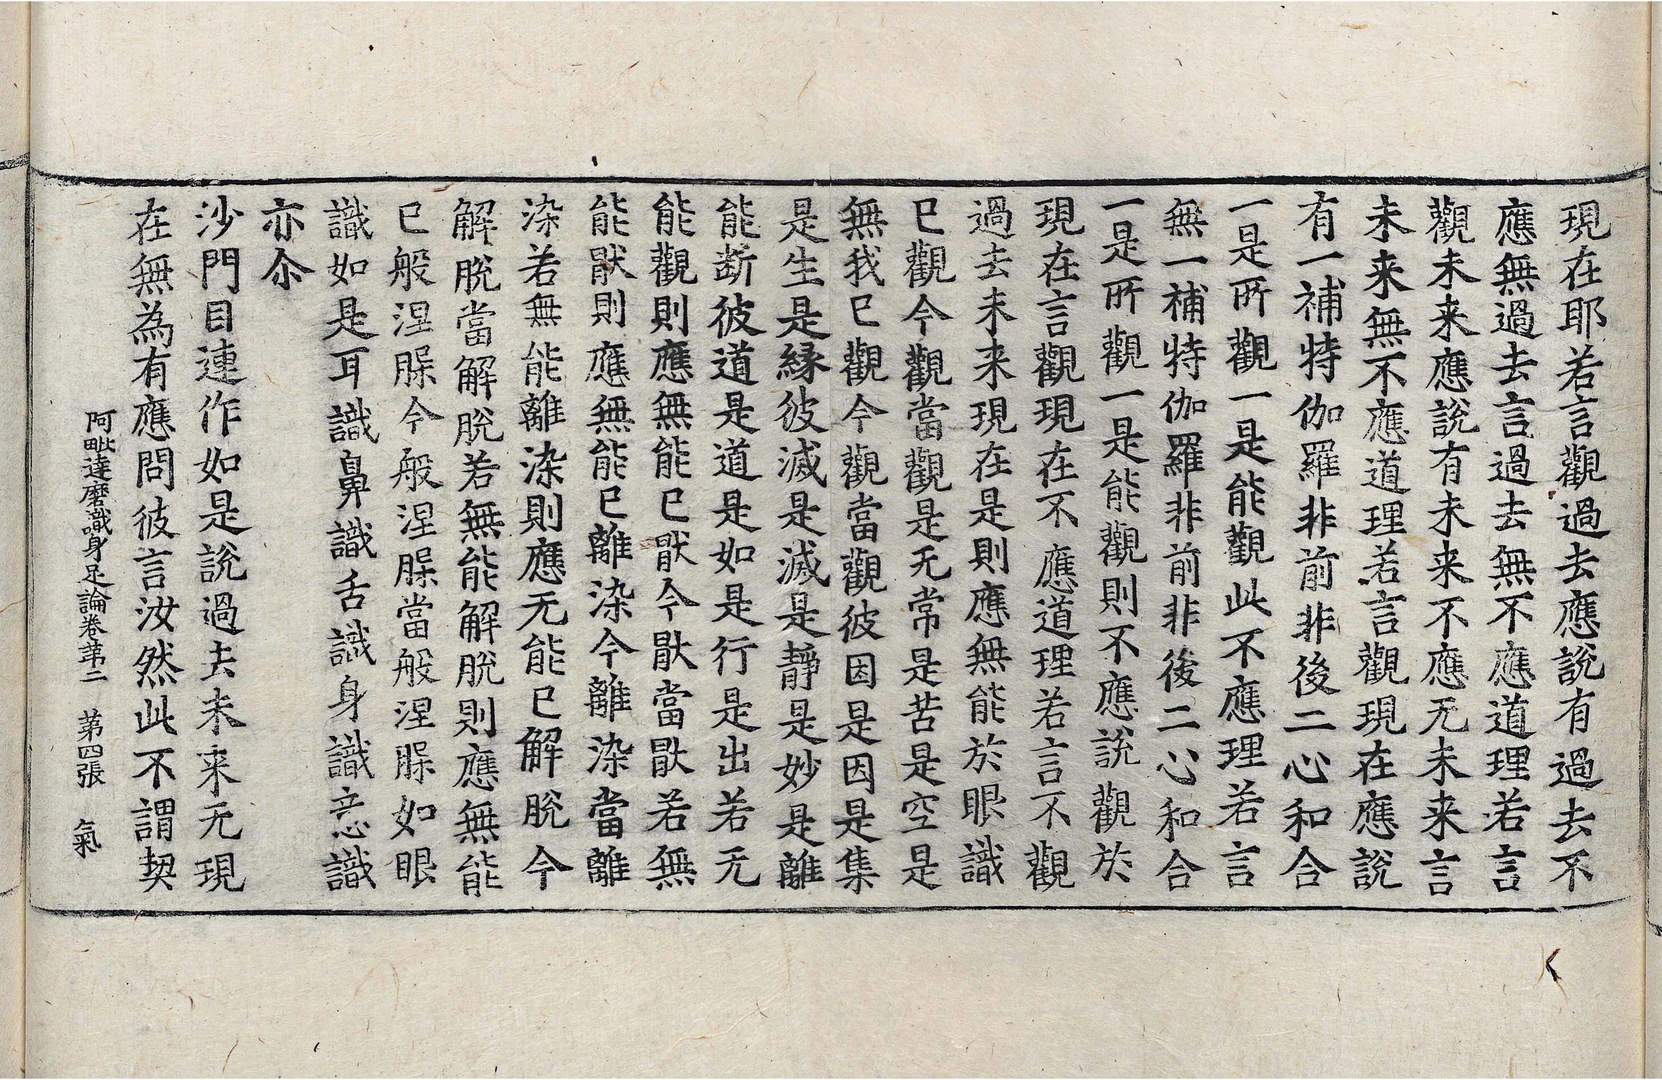 現在耶若言觀過去應說有過去不
應無過去言過去無不應道理若言
觀未来應說有未来不應无未来言
未来無不應道理若言觀現在應說
有一補特伽羅非前非後二心和合
一是所觀一是能觀此不應理若言
無一補特伽羅非前非後二心和合
一是所觀一是能觀則不應說觀於
現在言觀現在不應道理若言不觀
過去未来現在是則應無能於眼識
已觀今觀當觀是无常是苦是空是
無我已觀今觀當觀彼因是因是集
是生是緣彼滅是滅是靜是妙是離
能断彼道是道是如是行是出若无
能觀則應無能已猒今猒當猒若無
能猒則應無能已離染今離染當離
染若無能離染則應无能已解脫今
解脫當解脫若無能解脫則應無能
已般涅槃今般涅槃當般涅槃如眼
識如是耳識鼻識舌識身識意識
亦尒
沙門目連作如是說過去未来无現
在無為有應問彼言汝然此不謂契
阿毗達磨識身足論卷第二　第四張　氣